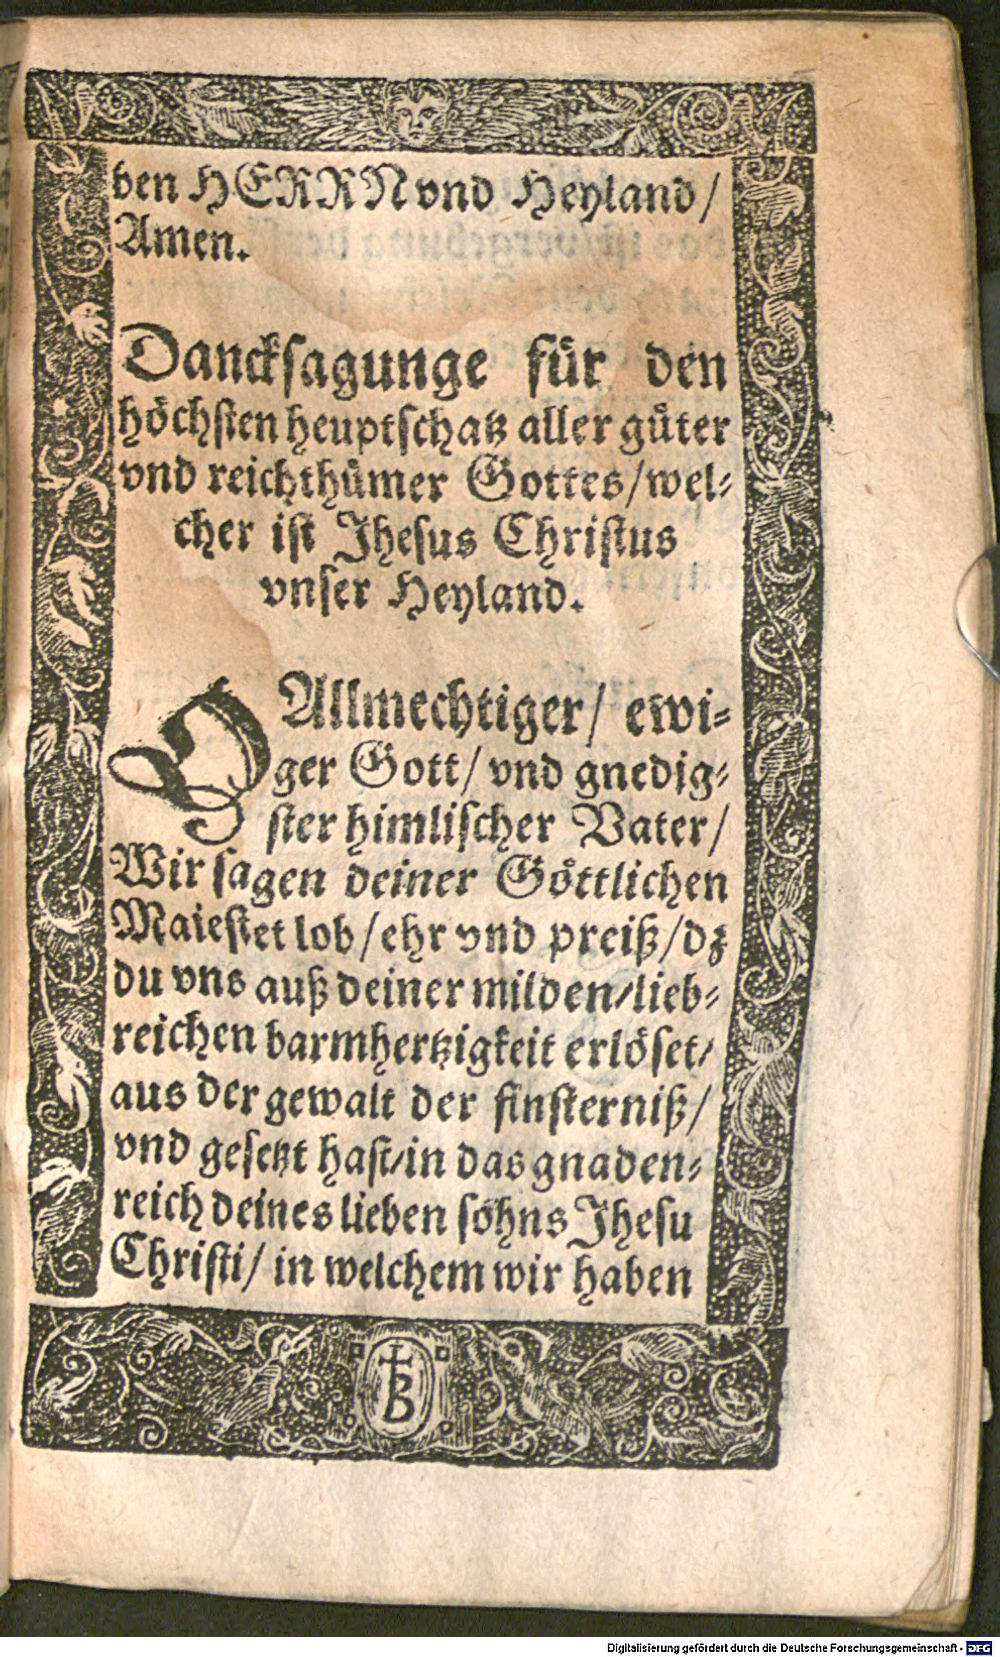 ben HERRN vnd Heyland/
Amen.
Dancksagunge für den
höchsten heuptschatz aller güter
vnd reichthümer Gottes/wel-
cher ist Jhesus Christus
vnser Heyland.
O Allmechtiger/ ewi-
ger Gott/ vnd gnedig-
ster himlischer Vater/
Wir sagen deiner Göttlichen
Maiestet lob/ehr vnd preiß/dz
du vns auß deiner milden/lieb-
reichen barmhertzigkeit erlöset/
aus der gewalt der finsterniß/
vnd gesetzt hast/in das gnaden-
reich deines lieben söhns Jhesu
Christi/ in welchem wir haben
B
Digitalisierung gefördert durch die Deutsche Forschungsgemeinschaft - DFG